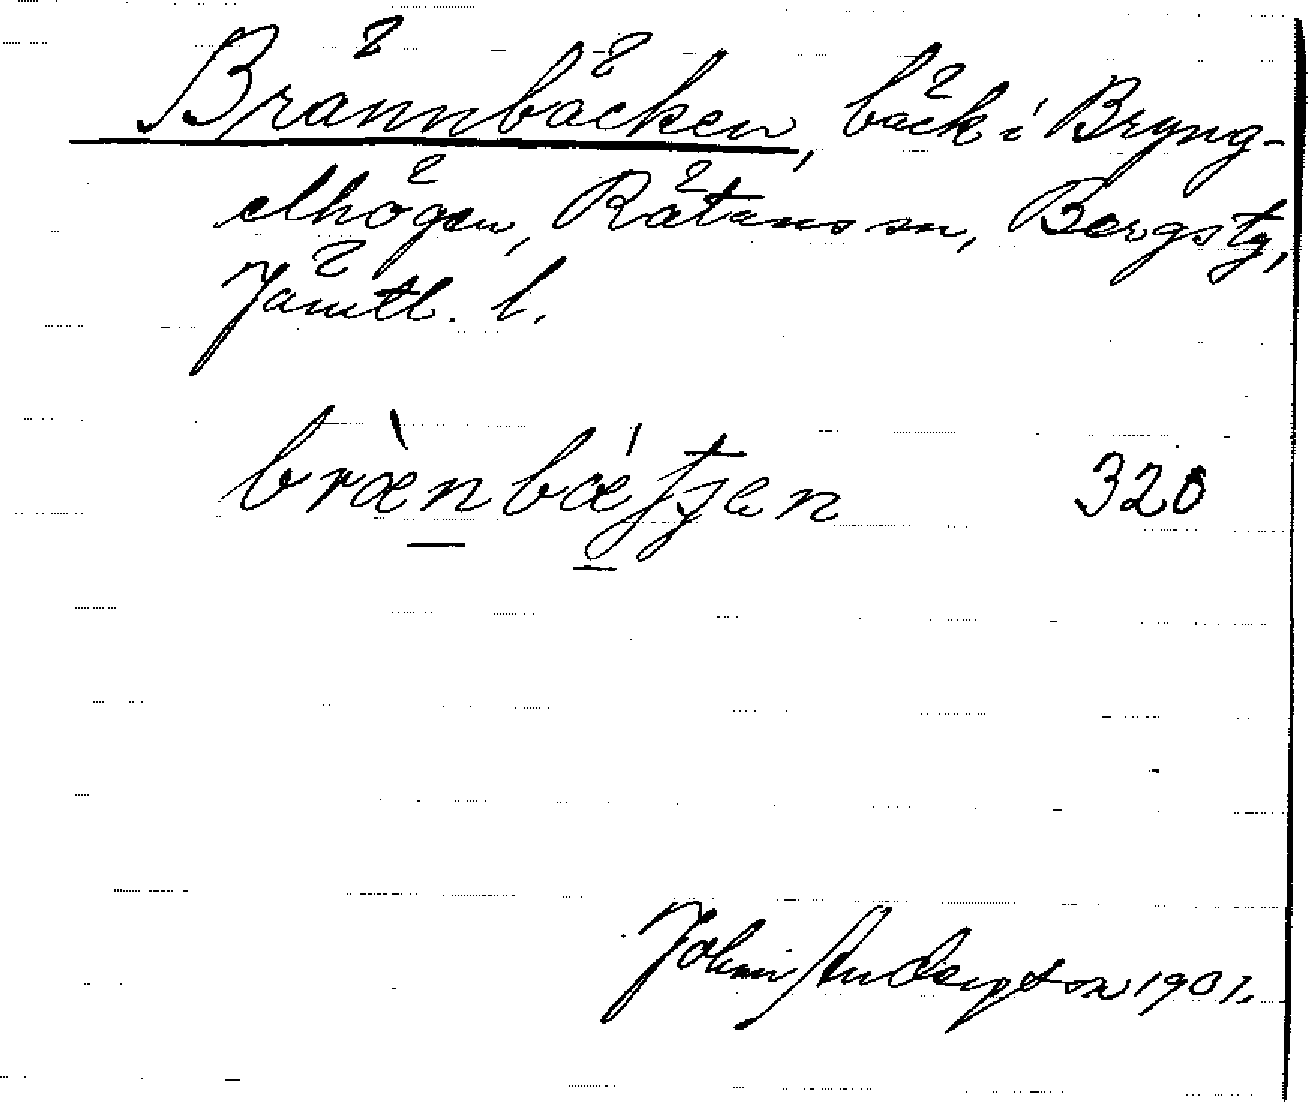 Brännbäcken, bäck i Bryng-
elhögen, Rätans sn, Bergs tg,
Jämtl. l.
bræ̀nbǽʃʇen 320
John Andersson 1901.